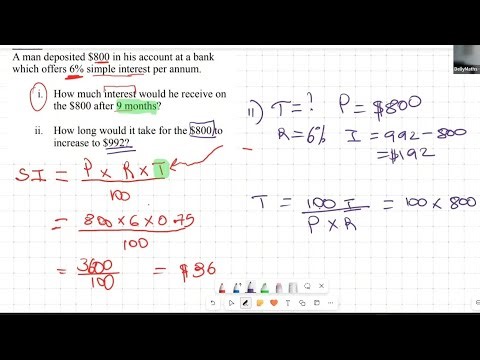 BellyMaths
A man deposited $800 in his account at a bank
which offers 6% simple interest per annum.
i. How much interest would he receive on
the $800 after 9 months?
ii. How long would it take for the $800 to
increase to $992?
SI = P x R x T
100
= 800 x 6 x 0.75
100
= 3600 = $36
100
ii) T = ? P = $800
R = 6% I = 992 - 800
= $192
T = 100 I = 100 x 800
P x R